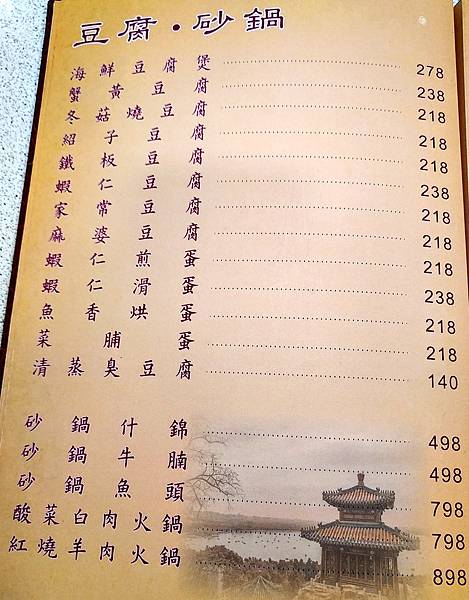 豆腐・砂鍋
海鮮豆腐煲 278
蟹黃豆腐 238
冬菇燒豆腐 218
紹子豆腐 218
鐵板豆腐 218
蝦仁豆腐 238
家常豆腐 218
麻婆豆腐 218
蝦仁煎蛋 218
蝦仁滑蛋 238
魚香烘蛋 218
菜脯蛋 218
清蒸臭豆腐 140
砂鍋什錦 498
砂鍋牛腩 498
砂鍋魚頭 798
酸菜白肉火鍋 798
紅燒羊肉火鍋 898